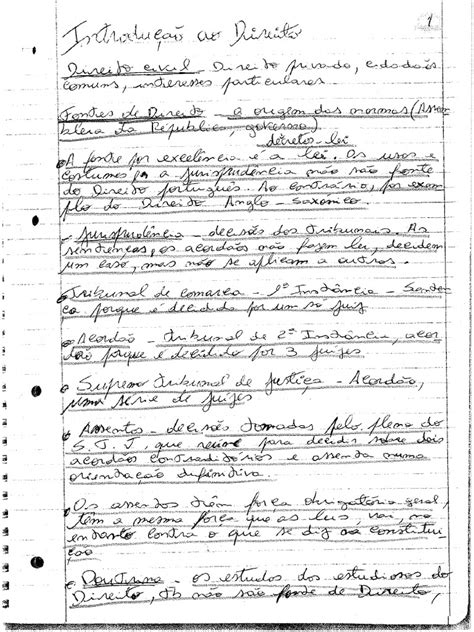 1
Introdução ao Direito
Direito civil - Direito privado, cidadãos
comuns, interesses particulares
Fontes de Direito - a origem das normas (Assem
bleia da República, governo)
decretos-lei
A fonte por excelência é a lei. Os usos e
costumes, a jurisprudência não são fonte
do Direito português. Ao contrário, por exem
plo do Direito Anglo-Saxónico.
- Jurisprudência - decisões dos tribunais. As
sentenças, os acordãos não fazem lei, decidem
um caso, mas não se aplicam a outros.
Tribunal de comarca - 1ª Instância - Senten
ça porque é decidida por um só juiz
Acordão - tribunal de 2ª Instância, acor
dão porque é decidido por 3 juizes
Supremo tribunal de justiça - Acordão,
uma série de juizes
Assentos - decisões tomadas pelo pleno do
S.T.J, que reune para decidir sobre dois
acordãos contraditórios e assenta numa
orientação definitiva.
Os assentos têm força obrigatória geral,
têm a mesma força que as leis, vai, no
entanto contra o que se diz na constitui
ção
Doutrina - os estudos dos estudiosos do
Direito, tb não são fonte de Direito,